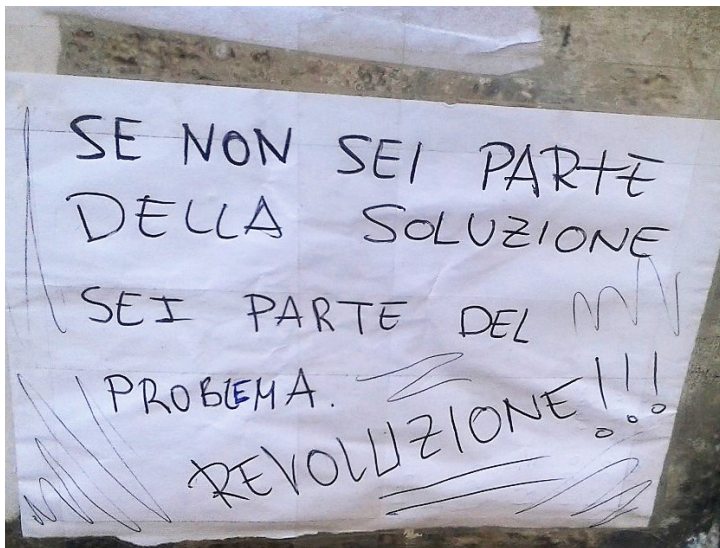 SE NON SEI PARTE
DELLA SOLUZIONE
SEI PARTE DEL
PROBLEMA.
REVOLUZIONE!!!